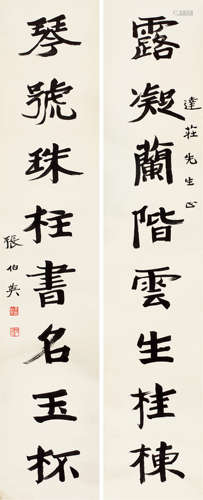 達莊先生正
露凝蘭階雲生桂棟
琴號珠柱書名玉杯
張伯英